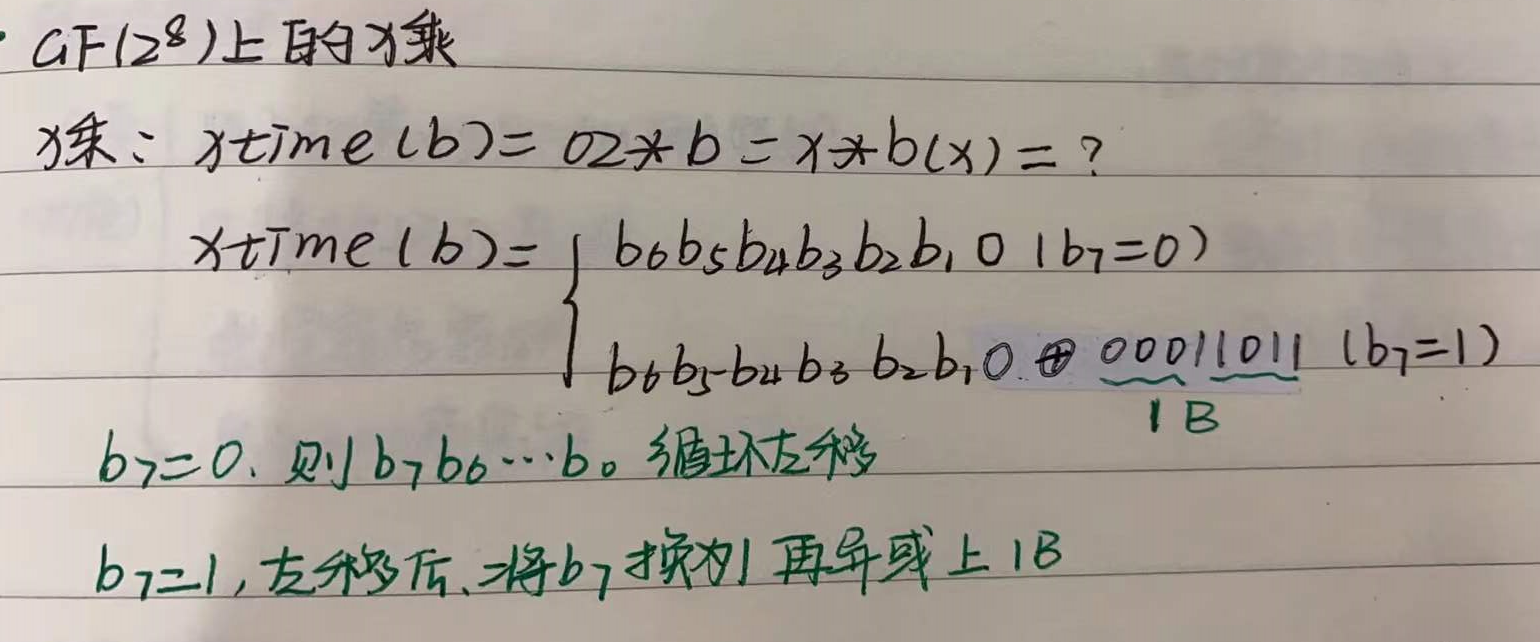 GF(2⁸)上的x乘
x乘: xtime(b)=02*b=x*b(x)=?
xtime(b)={ b₆b₅b₄b₃b₂b₁0 (b₇=0)
b₆b₅b₄b₃b₂b₁0 ⊕ 00011011 (b₇=1)
1 B
b₇=0. 则b₇b₆…b₀ 循环左移
b₇=1,左移后、将b₇换为1 再异或上1B